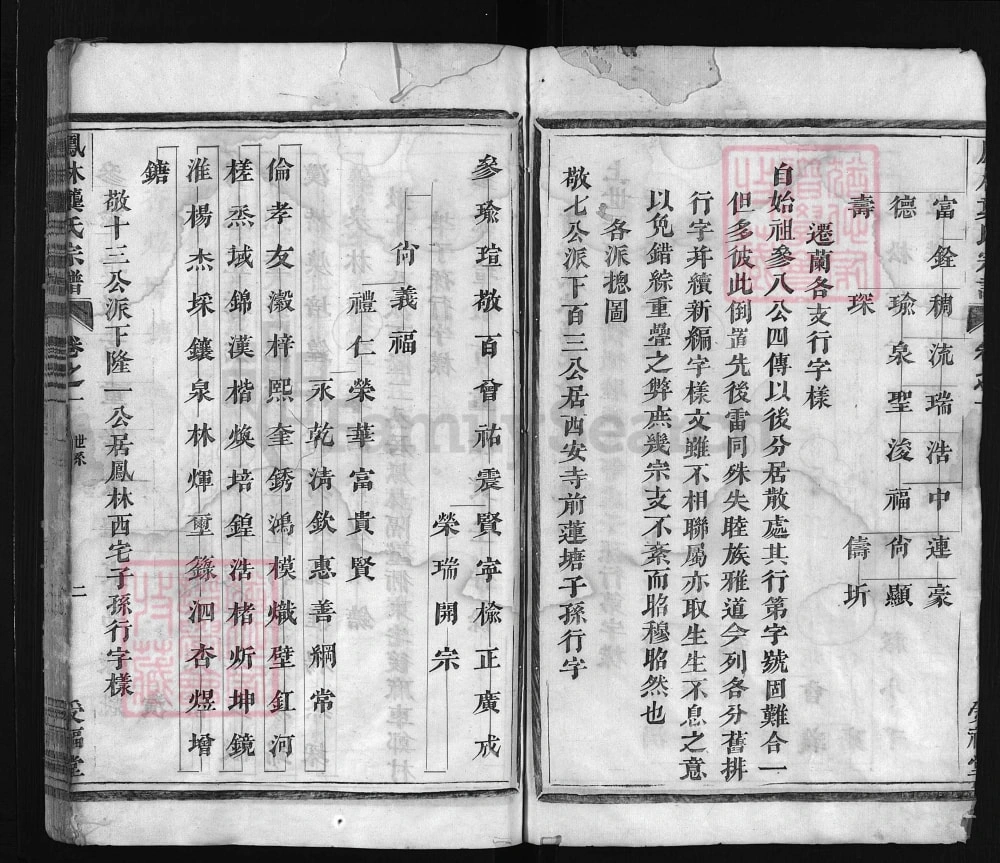 富銓稠流瑞浩中連豪
德瑜泉聖浚福尙顯
壽琛儔圻
遷蘭各支行字樣
自始祖參八公四傳以後分居散處其行第字號固難合一
但多彼此倒置先後雷同殊失睦族雅道今列各分舊排
行字幷續新編字樣文雖不相聯屬亦取生生不息之意
以免錯綜重疊之弊庶幾宗支不紊而昭穆昭然也
各派摠圖
敬七公派下百三公居西安寺前蓮塘子孫行字
參瑜瑄敬百曾祐震賢寧檢正廣戍
榮瑞開宗
尙義福
禮仁榮華富貴賢
永乾淸欽惠善綱常
倫孝友瀔梓熙奎銹鴻模熾壁釭河
槎烝域錦漢楷煥培鍠浩楮炘坤鏡
淮楊杰埰鑲泉林煇壐錄泗杏煜增
鏞
敬十三公派下隆一公居鳳林西宅子孫行字樣
鳳林龔氏宗譜
卷之一
世系
二
受福堂